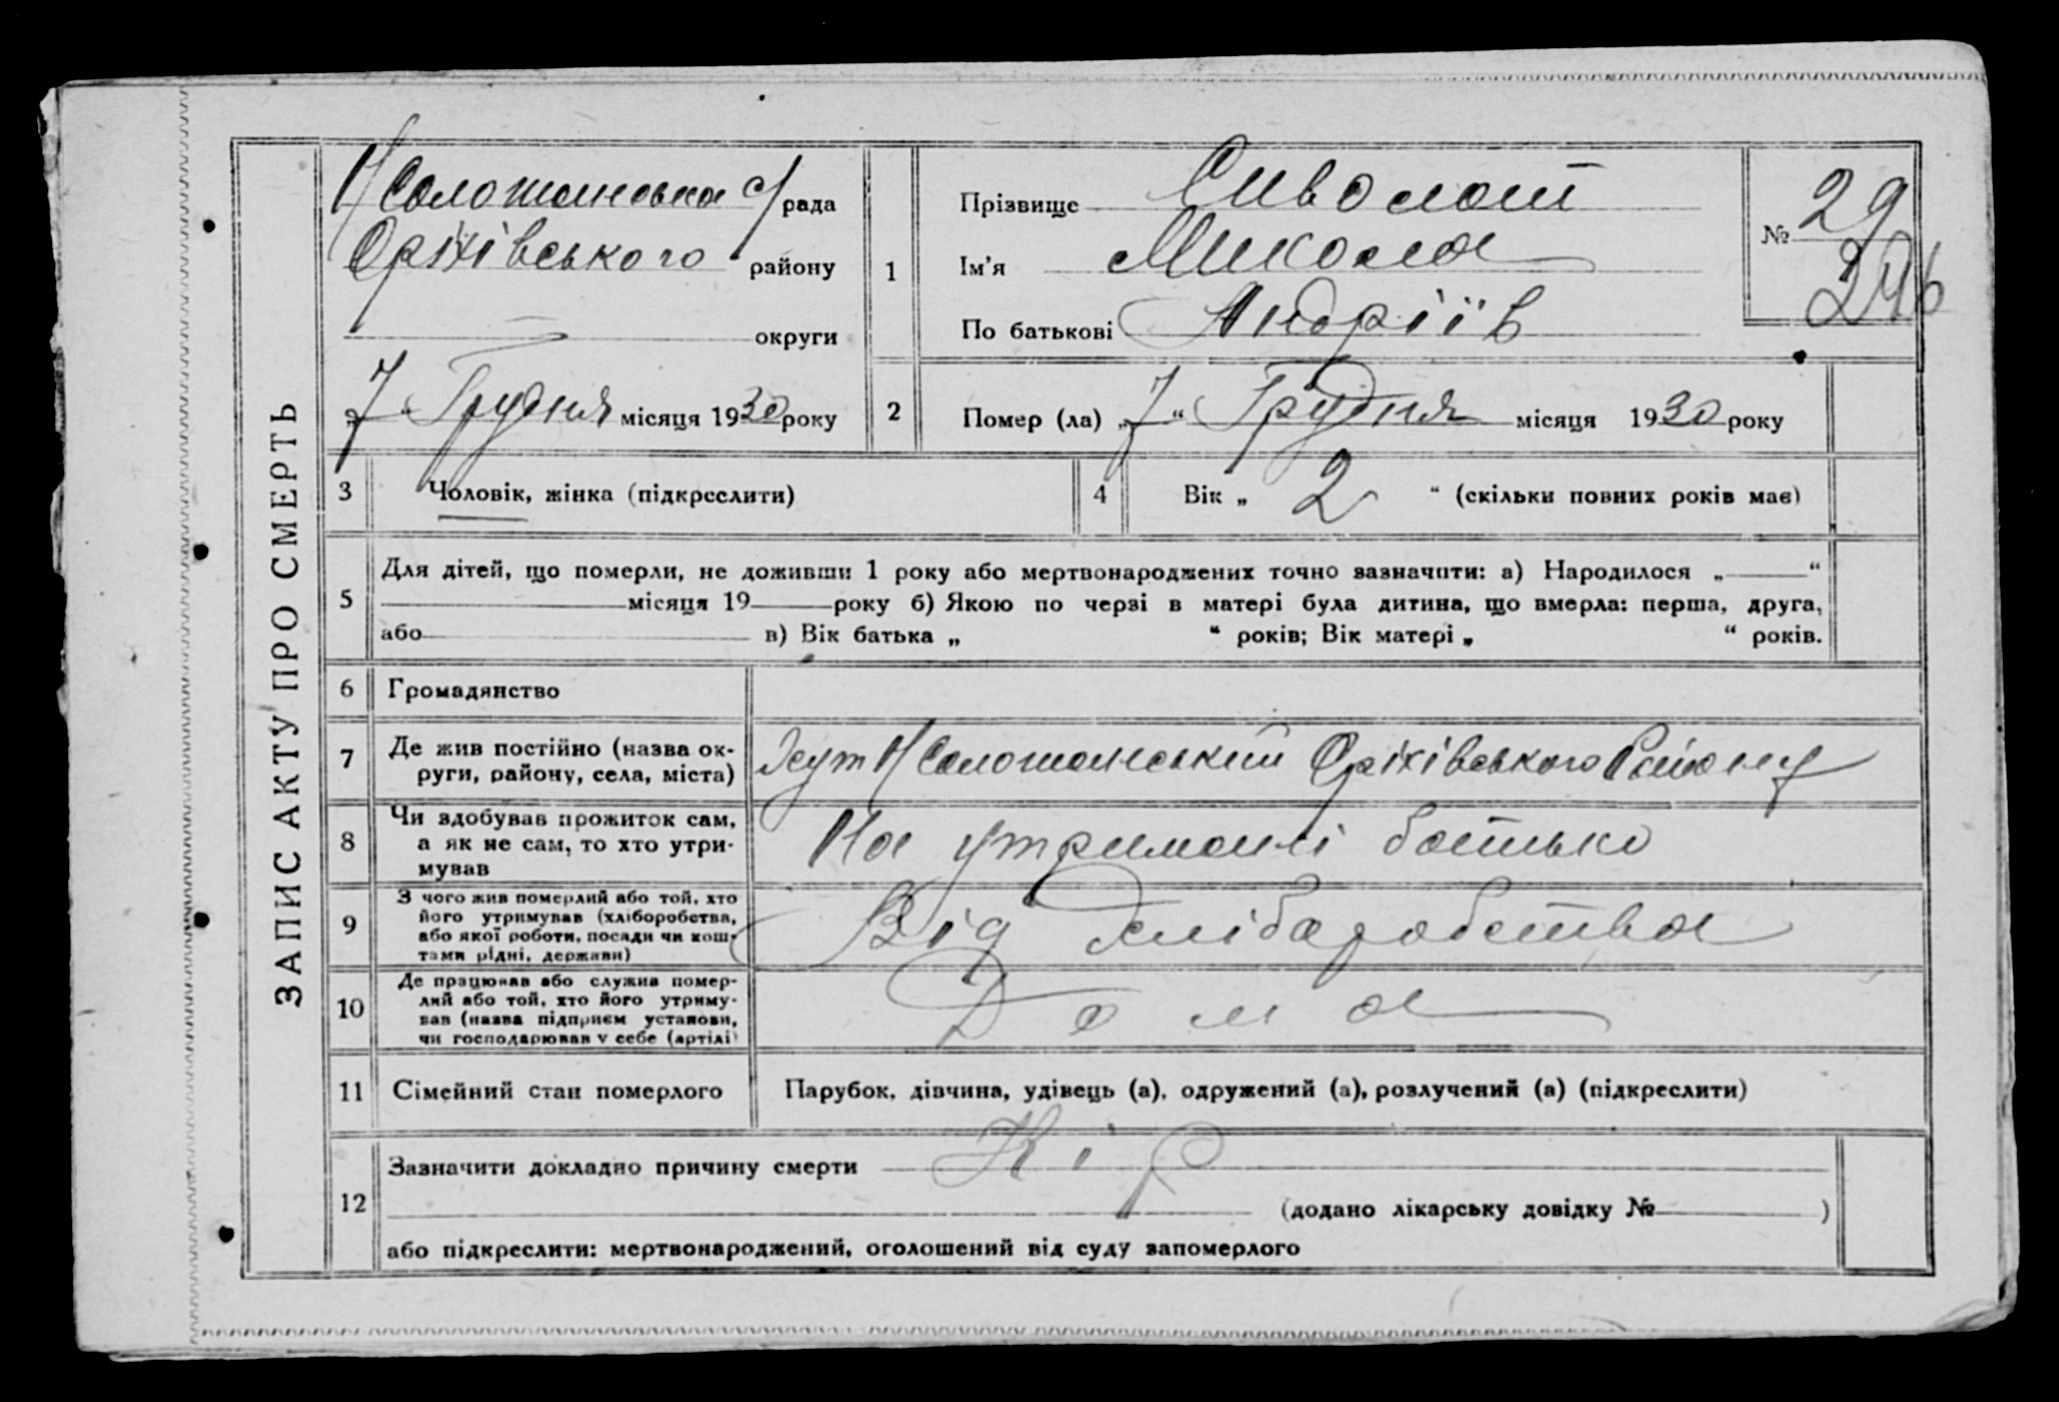 ЗАПИС АКТУ ПРО СМЕРТЬ
Н/Солошанська с/рада
Оріхівського району
округи
„7“ Грудня місяця 1930 року
1
Прізвище Сиволап
Ім'я Микола
По батькові Андріїв
№ 29
246
2
Помер (ла) „7“ Грудня місяця 1930 року
3 Чоловік, жінка (підкреслити)
4 Вік „ 2 “ (скільки повних років має)
5
Для дітей, що померли, не доживши 1 року або мертвонароджених точно зазначити: а) Народилося „ “
місяця 19 року б) Якою по черзі в матері була дитина, що вмерла: перша, друга,
або в) Вік батька „ “ років; Вік матері „ “ років.
6 Громадянство
7 Де жив постійно (назва ок-
руги, району, села, міста)
Хут Н/Солошанський Оріхівського Району
8 Чи здобував прожиток сам,
а як не сам, то хто утри-
мував
На утриманні батька
9 З чого жив померлий або той, хто
його утримував (хліборобства,
або якої роботи, посади чи кош-
тами рідні, держави)
Від хліборобства
10 Де працював або служив помер-
лий або той, хто його утриму-
вав (назва підприєм установи,
чи господарював у себе (артілі)
Дома
11 Сімейний стан померлого
Парубок, дівчина, удівець (а), одружений (а), розлучений (а) (підкреслити)
12
Зазначити докладно причину смерти Кір
(додано лікарську довідку № )
або підкреслити: мертвонароджений, оголошений від суду запомерлого